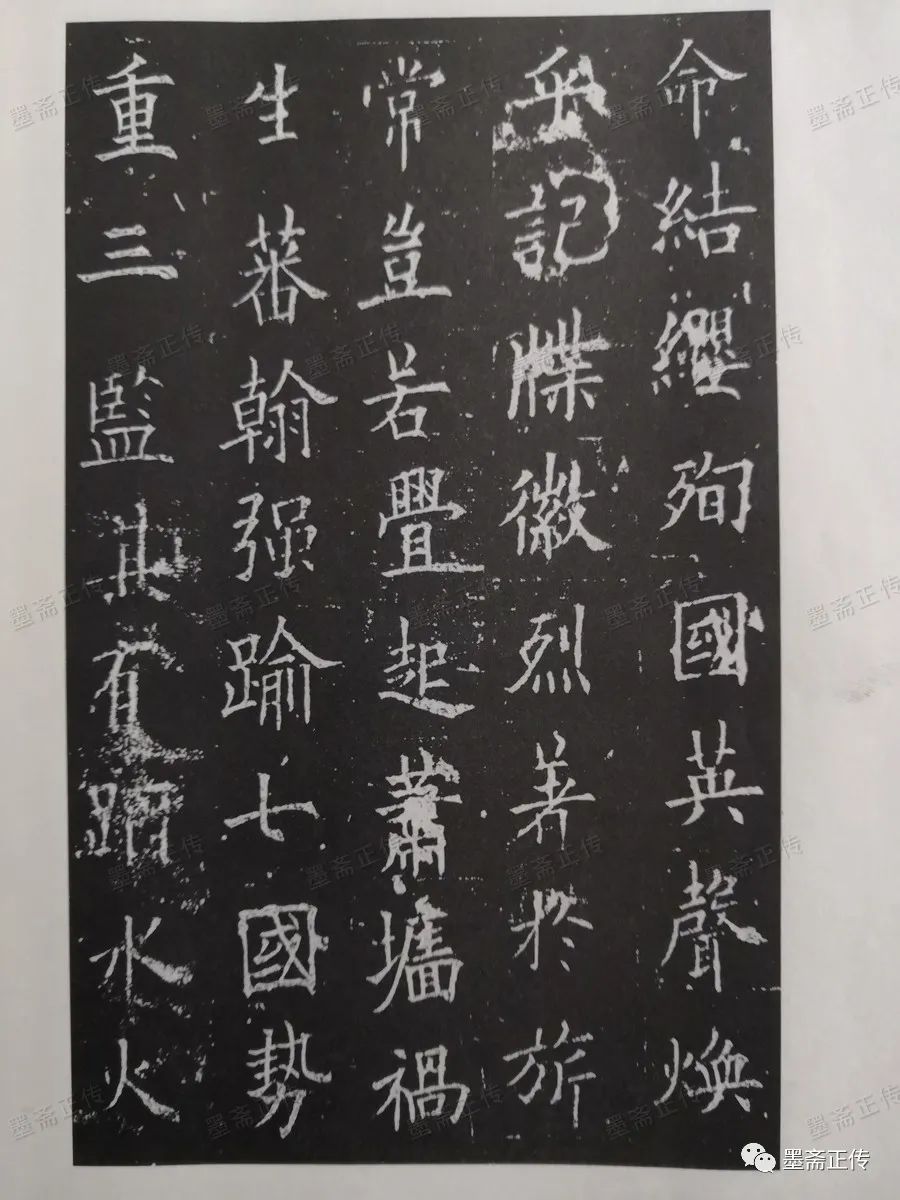 命結纓殉國英聲煥
乎記牒徽烈著於旂
常豈若疊起蕭墻禍
生蕃翰强踰七國勢
重三監其有蹈水火
墨斋正传